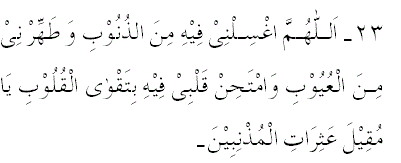 ٢٣ـ اَللّٰهُمَّ اغْسِلْنِىْ فِيْهِ مِنَ الذُنُوْبِ وَ طَهِّرْ نِىْ
مِنَ الْعُيُوْبِ وَامْتَحِنْ قَلْبِىْ فِيْهِ بِتَقْوٰى الْقُلُوْبِ يَا
مُقِيْلَ عَثِرَاتِ الْمُذْنِبِيْنَ۔